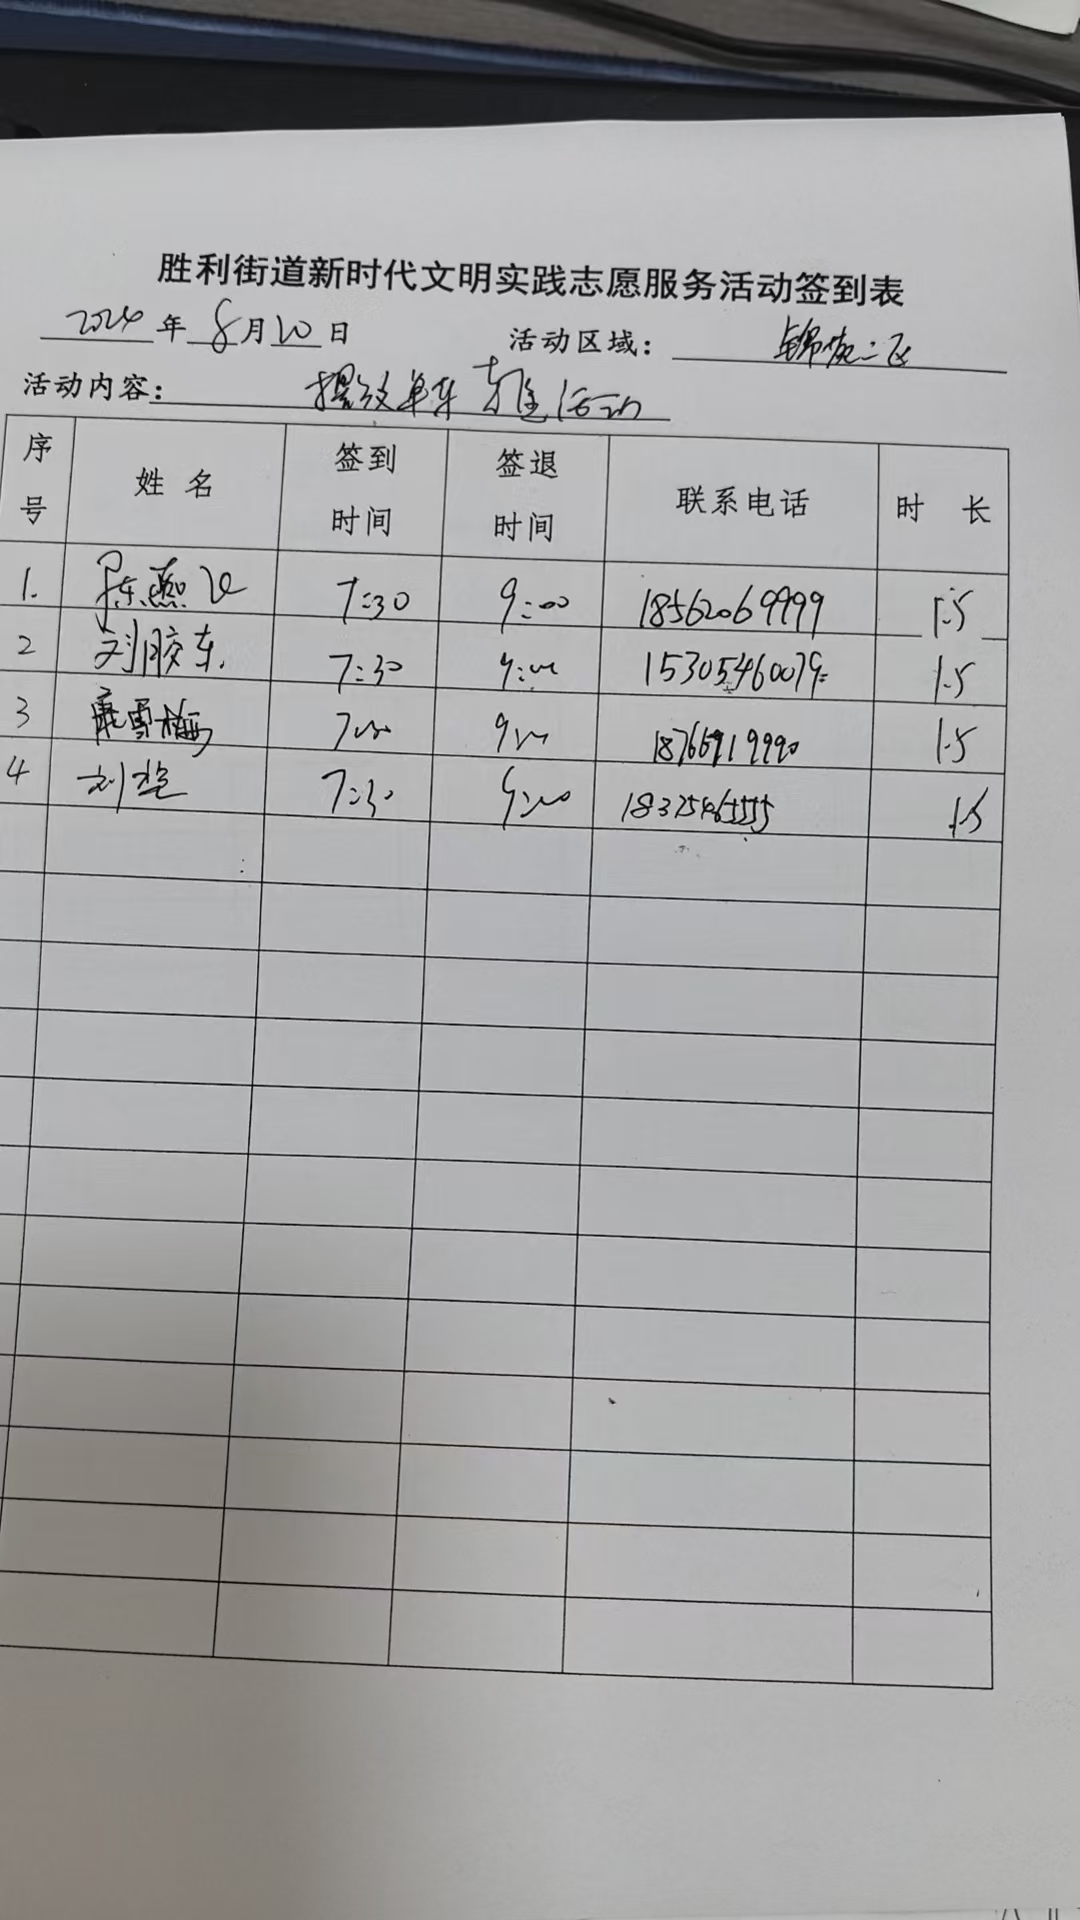 胜利街道新时代文明实践志愿服务活动签到表
2024年8月20日 活动区域：锦苑二区
活动内容：摆放单车志愿活动
序号 姓名 签到时间 签退时间 联系电话 时长
1. 陈燕飞 7:30 9:00 18562069999 1.5
2 刘胶东 7:30 9:00 15305460079 1.5
3 雪梅 9 1.5
4 刘 7:30 9:00 1.5